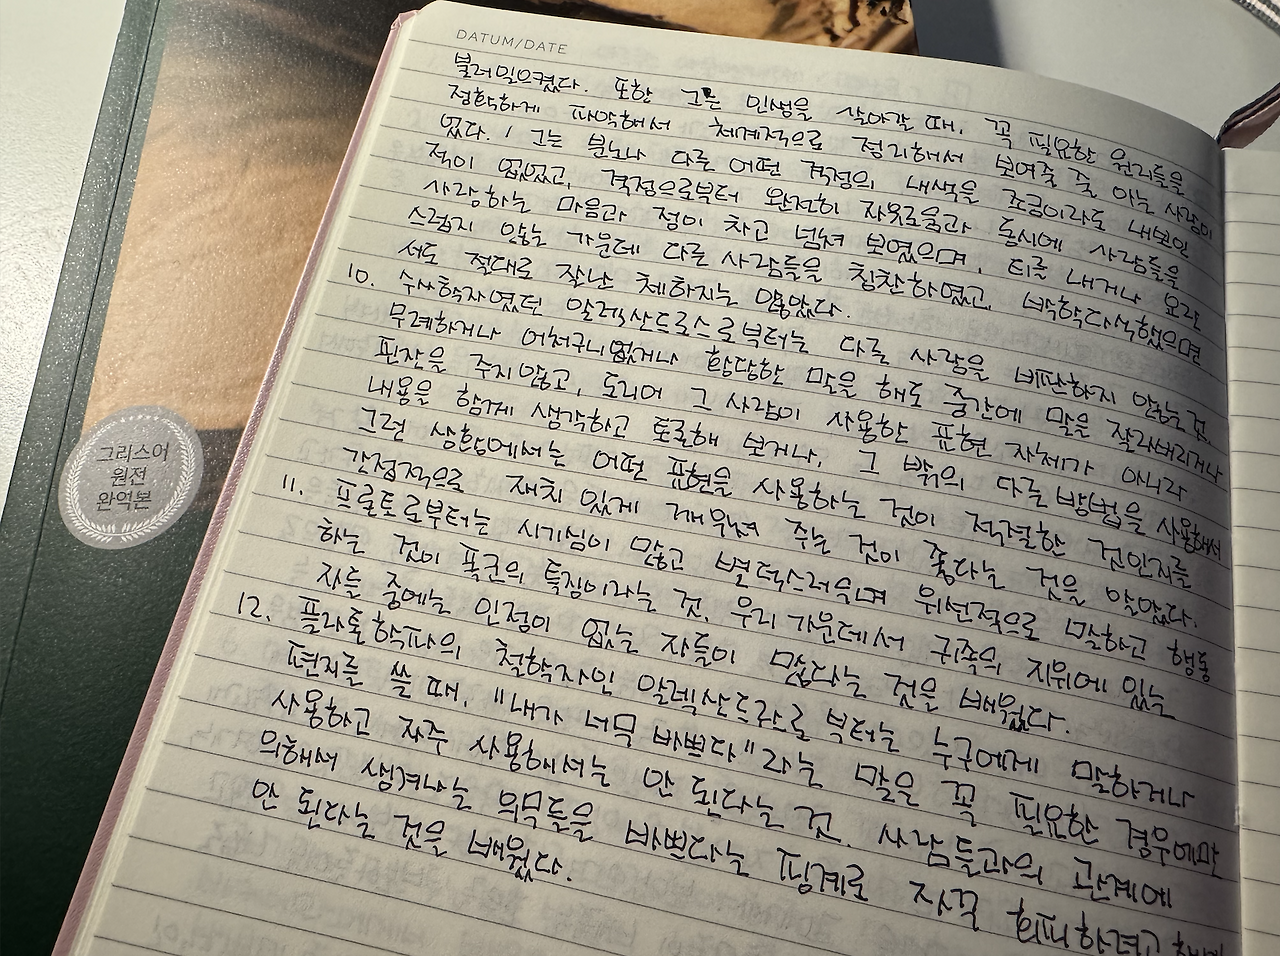 그리스어
원전
완역본
DATUM/DATE
불러일으켰다. 또한 그는 인생을 살아갈 때, 꼭 필요한 원리들을
정확하게 파악해서 체계적으로 정리해서 보여줄 줄 아는 사람이
었다. / 그는 분노나 다른 어떤 격정의 내색을 조금이라도 내보인
적이 없었고, 격정으로부터 완전히 자유로움과 동시에 사람들을
사랑하는 마음과 정이 차고 넘쳐 보였으며, 티를 내거나 요란
스럽지 않는 가운데 다른 사람들을 칭찬하였고, 박학다식했으면
서도 절대로 잘난 체하지는 않았다.
10. 수사학자였던 알렉산드로스로부터는 다른 사람을 비판하지 않는 것.
무례하거나 어처구니없거나 황당한 말을 해도 중간에 말을 잘라버리거나
핀잔을 주지 않고, 도리어 그 사람이 사용한 표현 자체가 아니라
내용을 함께 생각하고 토론해 보거나, 그 밖의 다른 방법을 사용해서
그런 상황에서는 어떤 표현을 사용하는 것이 적절한 것인지를
간접적으로 재치 있게 깨우쳐 주는 것이 좋다는 것을 알았다.
11. 프론토로부터는 시기심이 많고 변덕스러우며 위선적으로 말하고 행동
하는 것이 폭군의 특징이라는 것, 우리 가운데서 귀족의 지위에 있는
자들 중에는 인정이 없는 자들이 많다는 것을 배웠다.
12. 플라톤학파의 철학자인 알렉산드로스로부터는 누구에게 말하거나
편지를 쓸 때, "내가 너무 바쁘다"라는 말을 꼭 필요한 경우에만
사용하고 자주 사용해서는 안 된다는 것. 사람들과의 관계에
의해서 생겨나는 의무들을 바쁘다는 핑계로 자꾸 회피하려고
안 된다는 것을 배웠다.